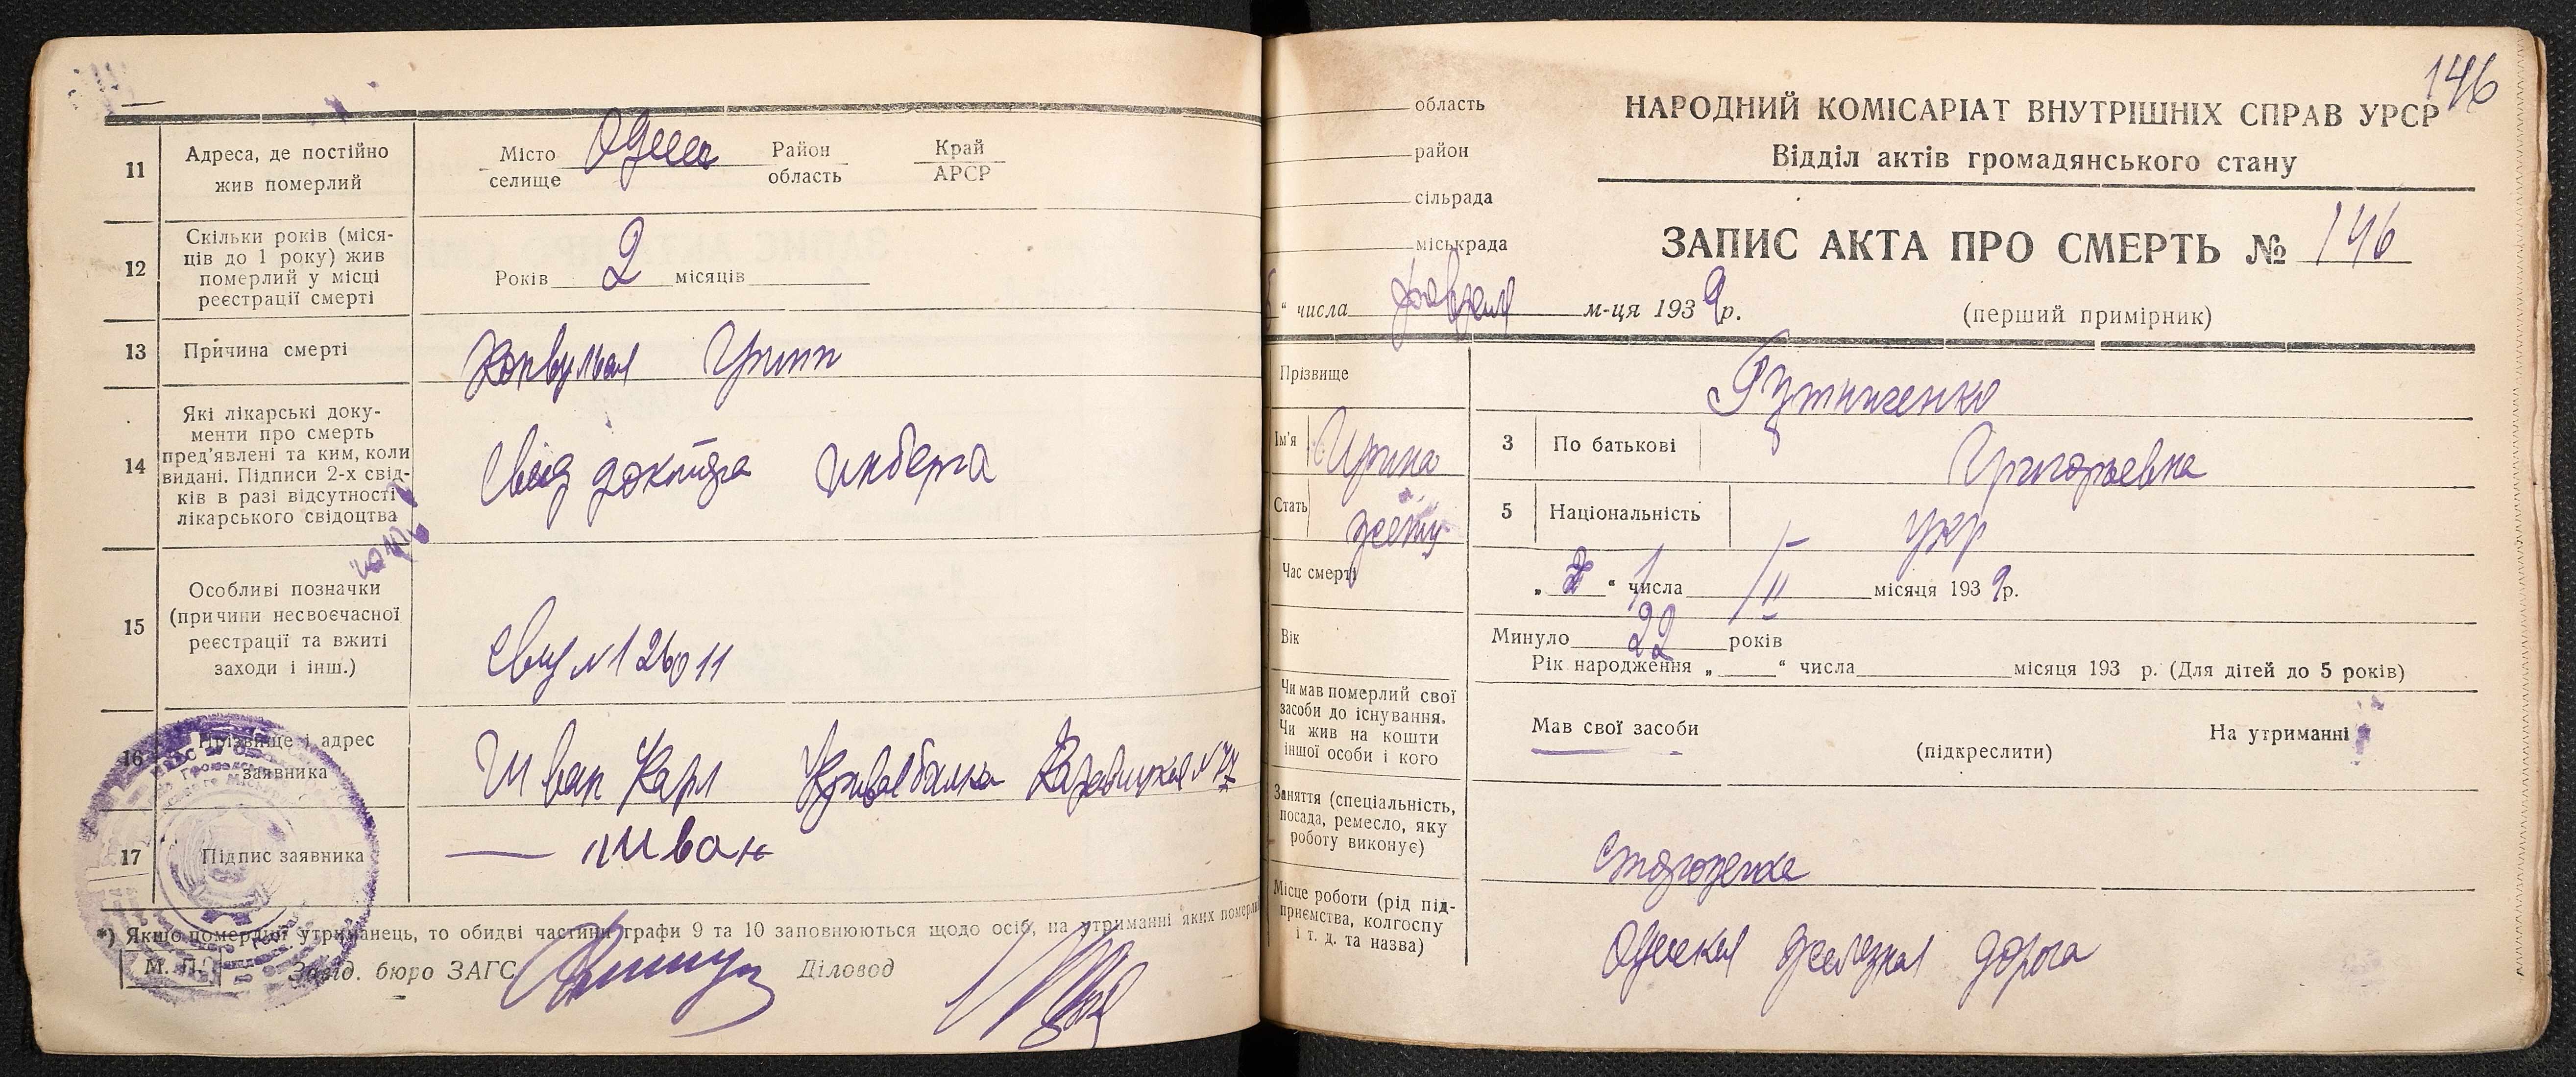 11
Адреса, де постійно
жив померлий
Місто
селище
Одесса
Район
область
Край
АРСР
12
Скільки років (міся-
ців до 1 року) жив
померлий у місці
реєстрації смерті
Років 2 місяців
13
Причина смерті
Грипп
14
Які лікарські доку-
менти про смерть
пред'явлені та ким, коли
видані. Підписи 2-х свід-
ків в разі відсутності
лікарського свідоцтва
15
Особливі позначки
(причини несвоєчасної
реєстрації та вжиті
заходи і інш.)
16
Прізвище і адрес
заявника
Шван Карл Кривая балка
17
Підпис заявника
Шван
*) Якщо померлий утриманець, то обидві частини графи 9 та 10 заповнюються щодо осіб, на утриманні яких
М. П.
Завід. бюро ЗАГС
Діловод
146
область
район
сільрада
міськрада
НАРОДНИЙ КОМІСАРІАТ ВНУТРІШНІХ СПРАВ УРСР
Відділ актів громадянського стану
ЗАПИС АКТА ПРО СМЕРТЬ № 146
" числа февраля м-ця 1939 р.
(перший примірник)
Прізвище
Ім'я
Ирина
3
По батькові
Григорьевна
Стать
5
Національність
укр
Час смерті
числа II місяця 1939 р.
Вік
Минуло 22 років
Рік народження „ “ числа місяця 193 р. (Для дітей до 5 років)
Чи мав померлий свої
засоби до існування.
Чи жив на кошти
іншої особи і кого
Мав свої засоби
(підкреслити)
На утриманні
Заняття (спеціальність,
посада, ремесло, яку
роботу виконує)
Місце роботи (рід під-
приємства, колгоспу
і т. д. та назва)
Одесская железная дорога